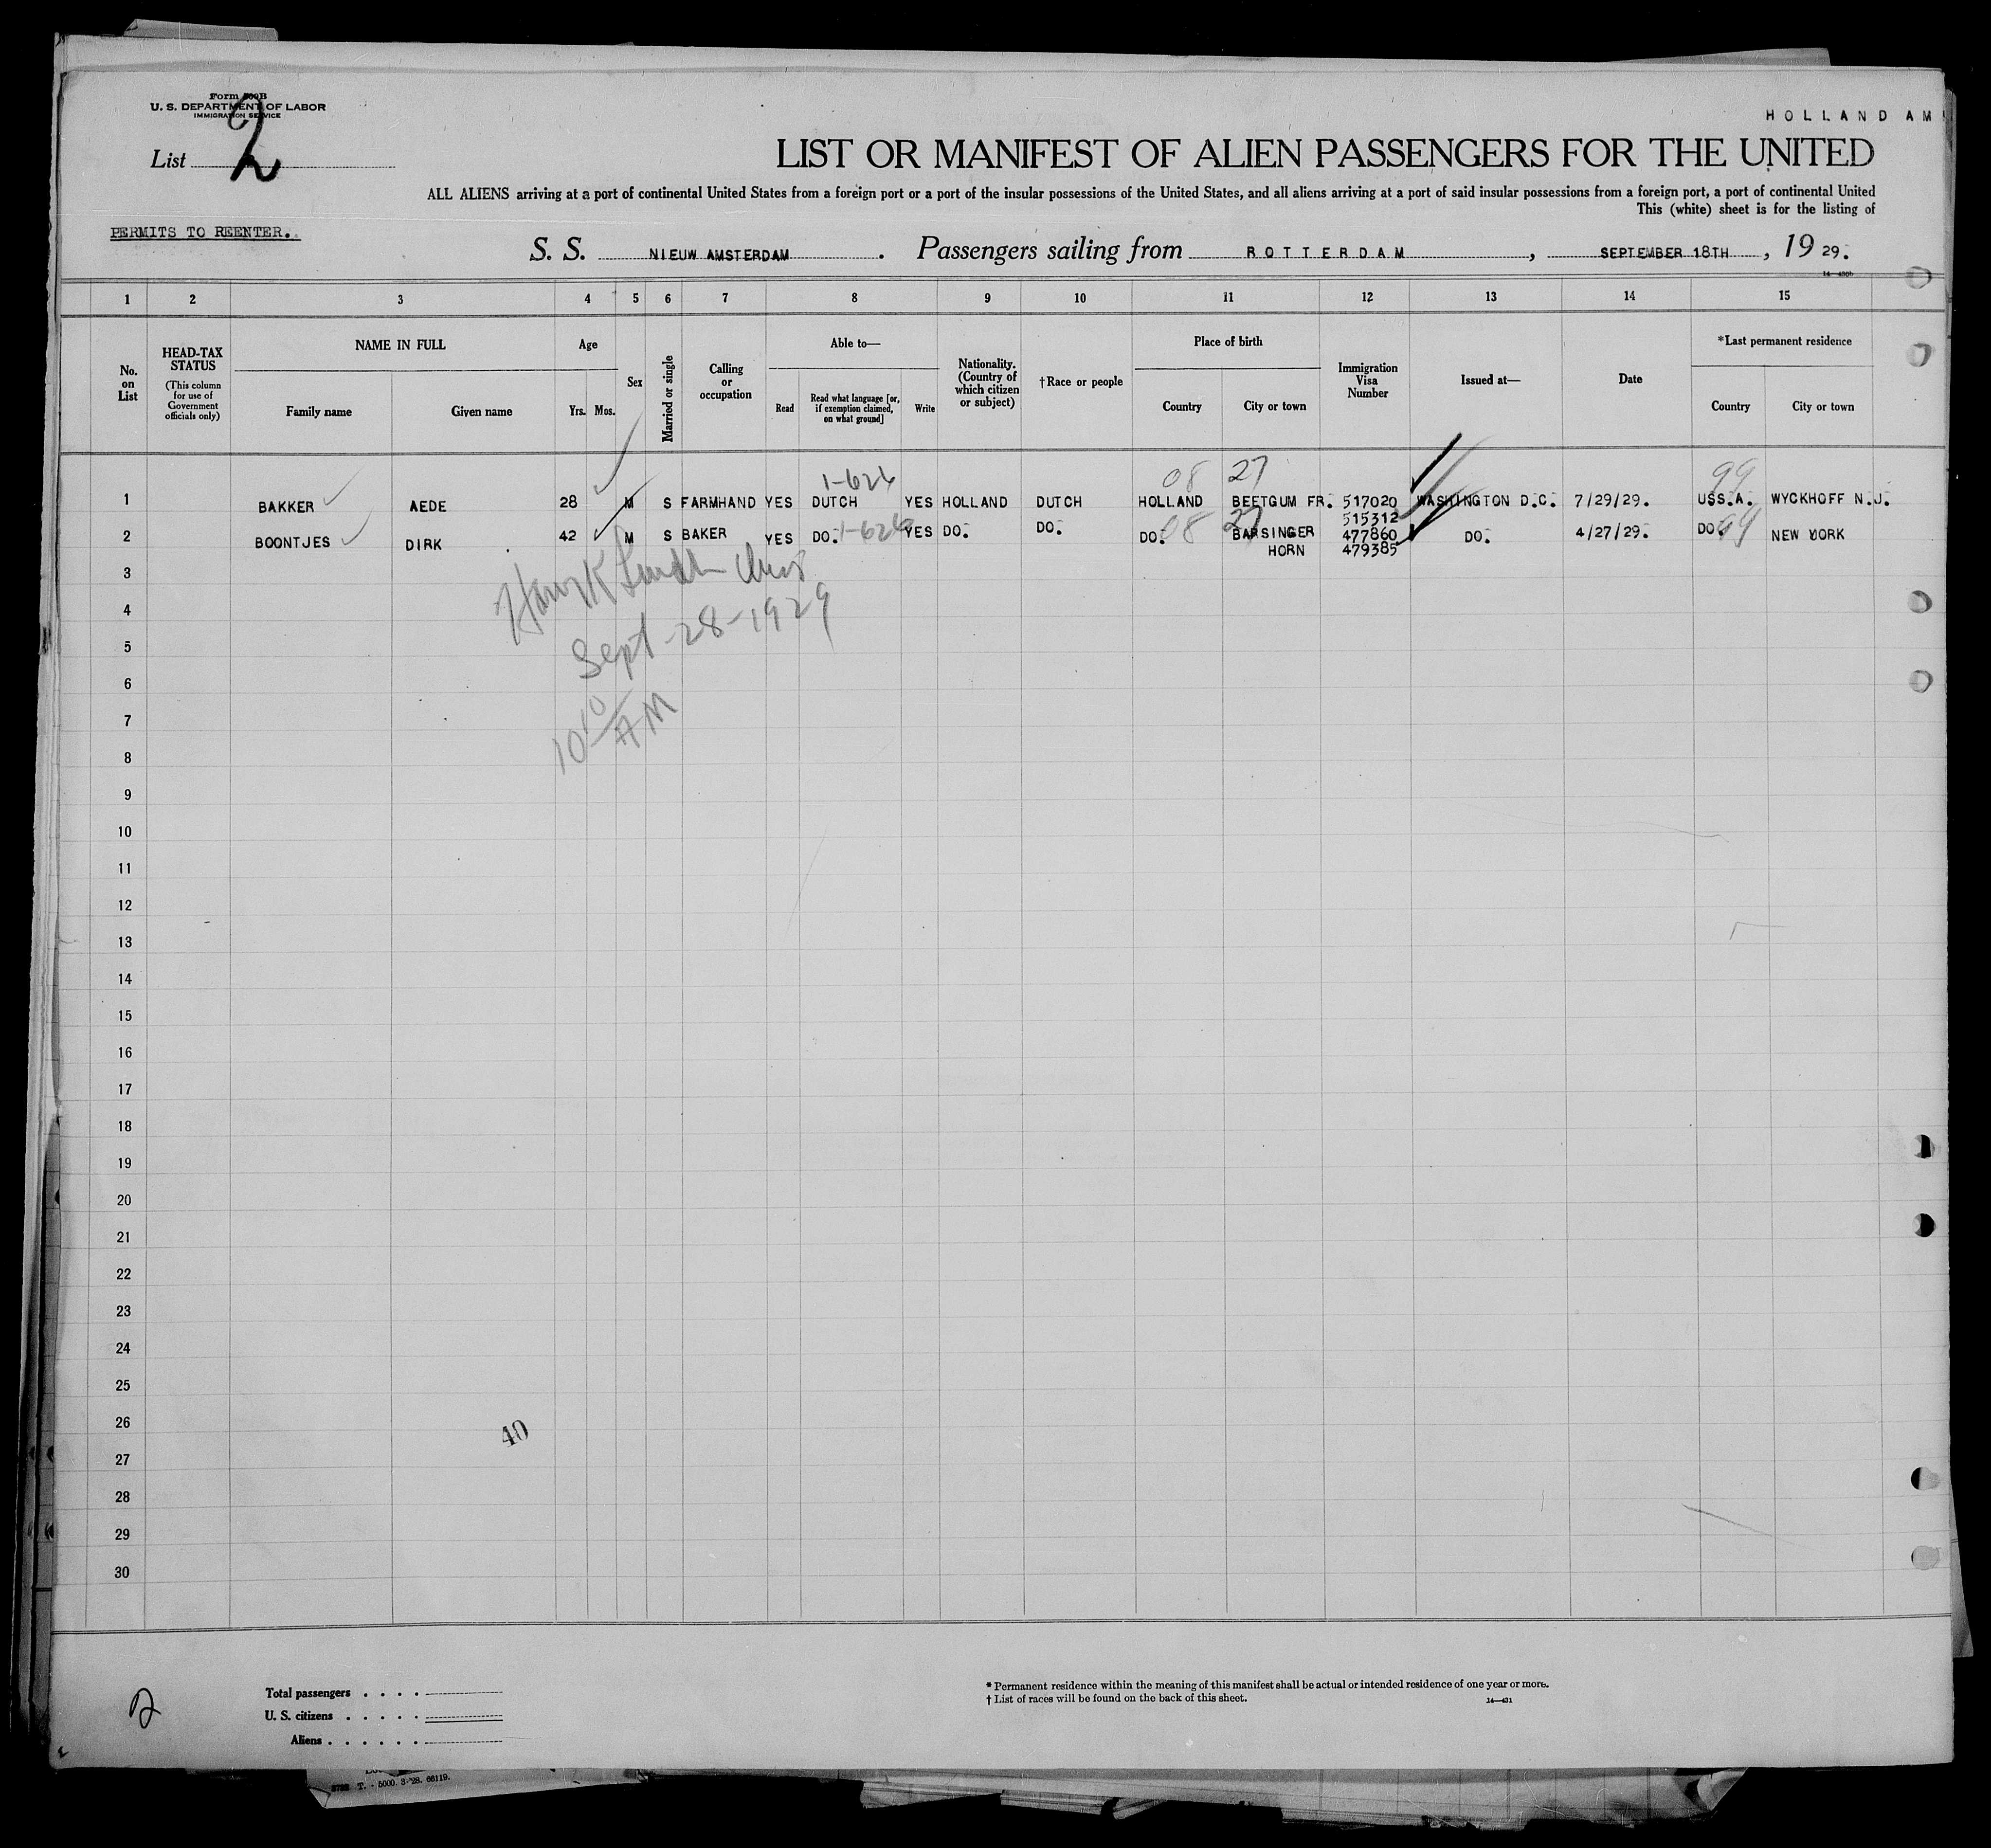 HOLLAND AM
Form 500B
U. S. DEPARTMENT OF LABOR
IMMIGRATION SERVICE
List 2
LIST OR MANIFEST OF ALIEN PASSENGERS FOR THE UNITED
ALL ALIENS arriving at a port of continental United States from a foreign port or a port of the insular possessions of the United States, and all aliens arriving at a port of said insular possessions from a foreign port, a port of continental United
This (white) sheet is for the listing of
PERMITS TO REENTER.
S. S. NIEUW AMSTERDAM. Passengers sailing from ROTTERDAM, SEPTEMBER 18TH, 19 29.
1 2 3 4 5 6 7 8 9 10 11 12 13 14 15
No. on List
HEAD-TAX STATUS
(This column for use of Government officials only)
NAME IN FULL
Family name
Given name
Age
Yrs. Mos.
Sex
Married or single
Calling or occupation
Able to—
Read
Read what language [or, if exemption claimed, on what ground]
Write
Nationality. (Country of which citizen or subject)
†Race or people
Place of birth
Country
City or town
Immigration Visa Number
Issued at—
Date
*Last permanent residence
Country
City or town
1-626 08 27 99
1 BAKKER AEDE 28 M S FARMHAND YES DUTCH YES HOLLAND DUTCH HOLLAND BEETGUM FR. 517020 WASHINGTON D.C. 7/29/29. USS.A. WYCKHOFF N.J.
515312
2 BOONTJES DIRK 42 M S BAKER YES DO. 1-626 YES DO. DO. DO. 08 27 BARSINGER 477860 DO. 4/27/29. DO. 99 NEW YORK
HORN 479385
3
Sept-28-1929
4
5
6
7
10 10/AM
8
9
10
11
12
13
14
15
16
17
18
19
20
21
22
23
24
25
26
40
27
28
29
30
Total passengers
U. S. citizens
Aliens
* Permanent residence within the meaning of this manifest shall be actual or intended residence of one year or more.
† List of races will be found on the back of this sheet.
14—431
T. - 5000. 3-'28. 66119.